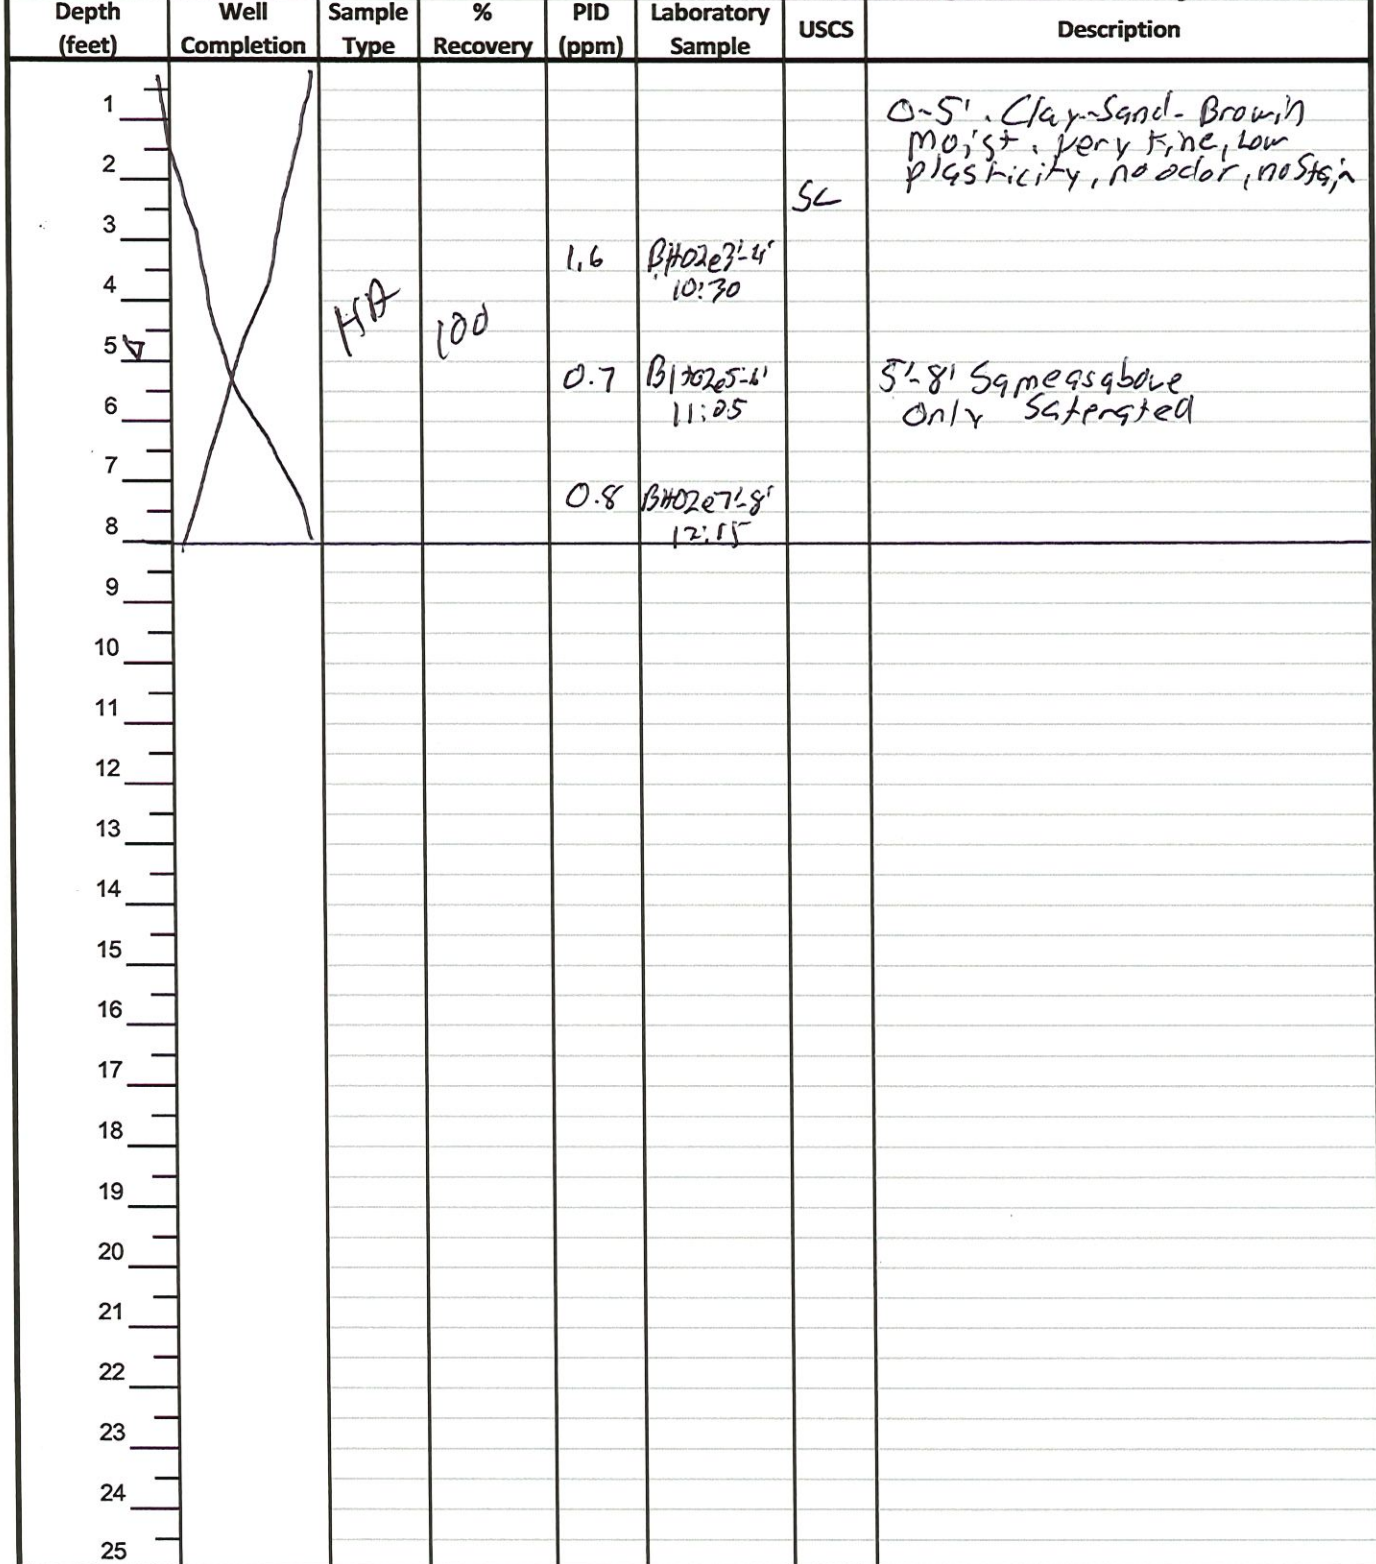 Depth (feet) Well Completion Sample Type % Recovery PID (ppm) Laboratory Sample USCS Description
1
0-5'. Clay-Sand-Brown
moist, very fine, Low
2
plasticity, no odor, no Stain
SC
3
1.6 BH02e3'-4'
10:30
4
HA 100
5
0.7 BH02e5-6' 5'-8' Same as above
6
11:05 Only Saterated
7
0.8 BH02e7'-8'
8
12:15
9
10
11
12
13
14
15
16
17
18
19
20
21
22
23
24
25